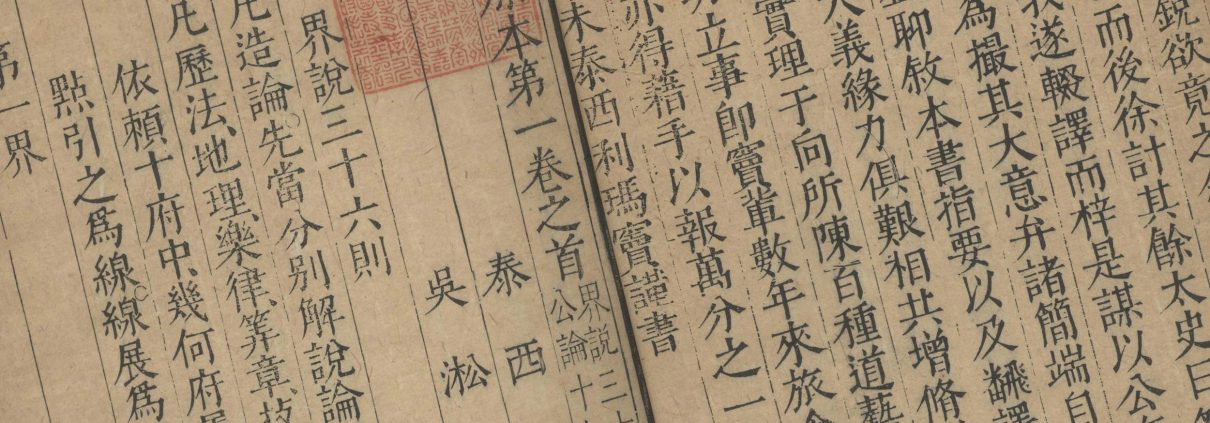 銳欲竟之
而後徐計其餘太史曰
遂輟譯而梓是謀以公
為撮其大意弁諸簡端自
聊敘本書指要以及翻譯
大義緣力俱艱相共增脩
實理于向所陳百種道藝
立事即竇輩數年來旅
亦得藉手以報萬分之一
未泰西利瑪竇謹書
本第一卷之首
界說三十
公論十
泰西
吳淞
界說三十六則
凡造論先當分別解說論
凡歷法、地理、樂律、筭章、技
依賴十府中、幾何府
點引之爲線線展爲
第一界